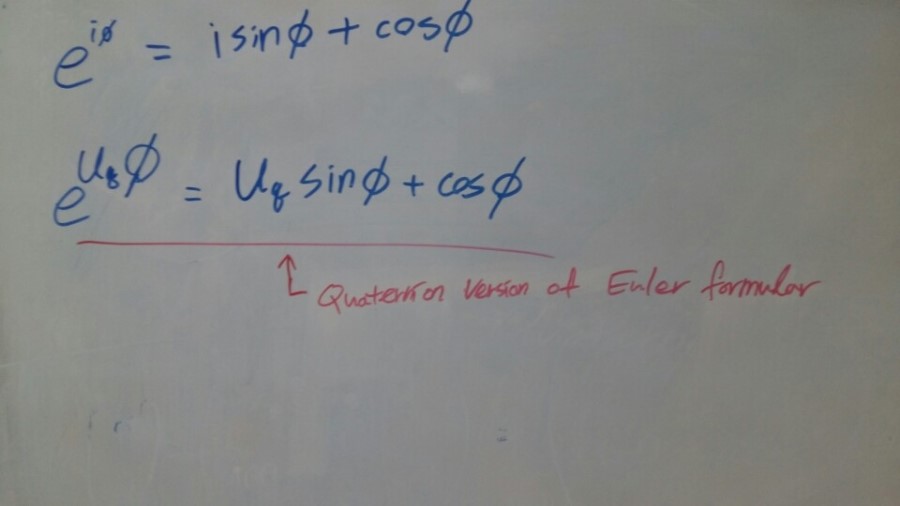 e^{iϕ} = i sinϕ + cosϕ
e^{U_qϕ} = U_q sinϕ + cosϕ
Quaternion Version of Euler formular